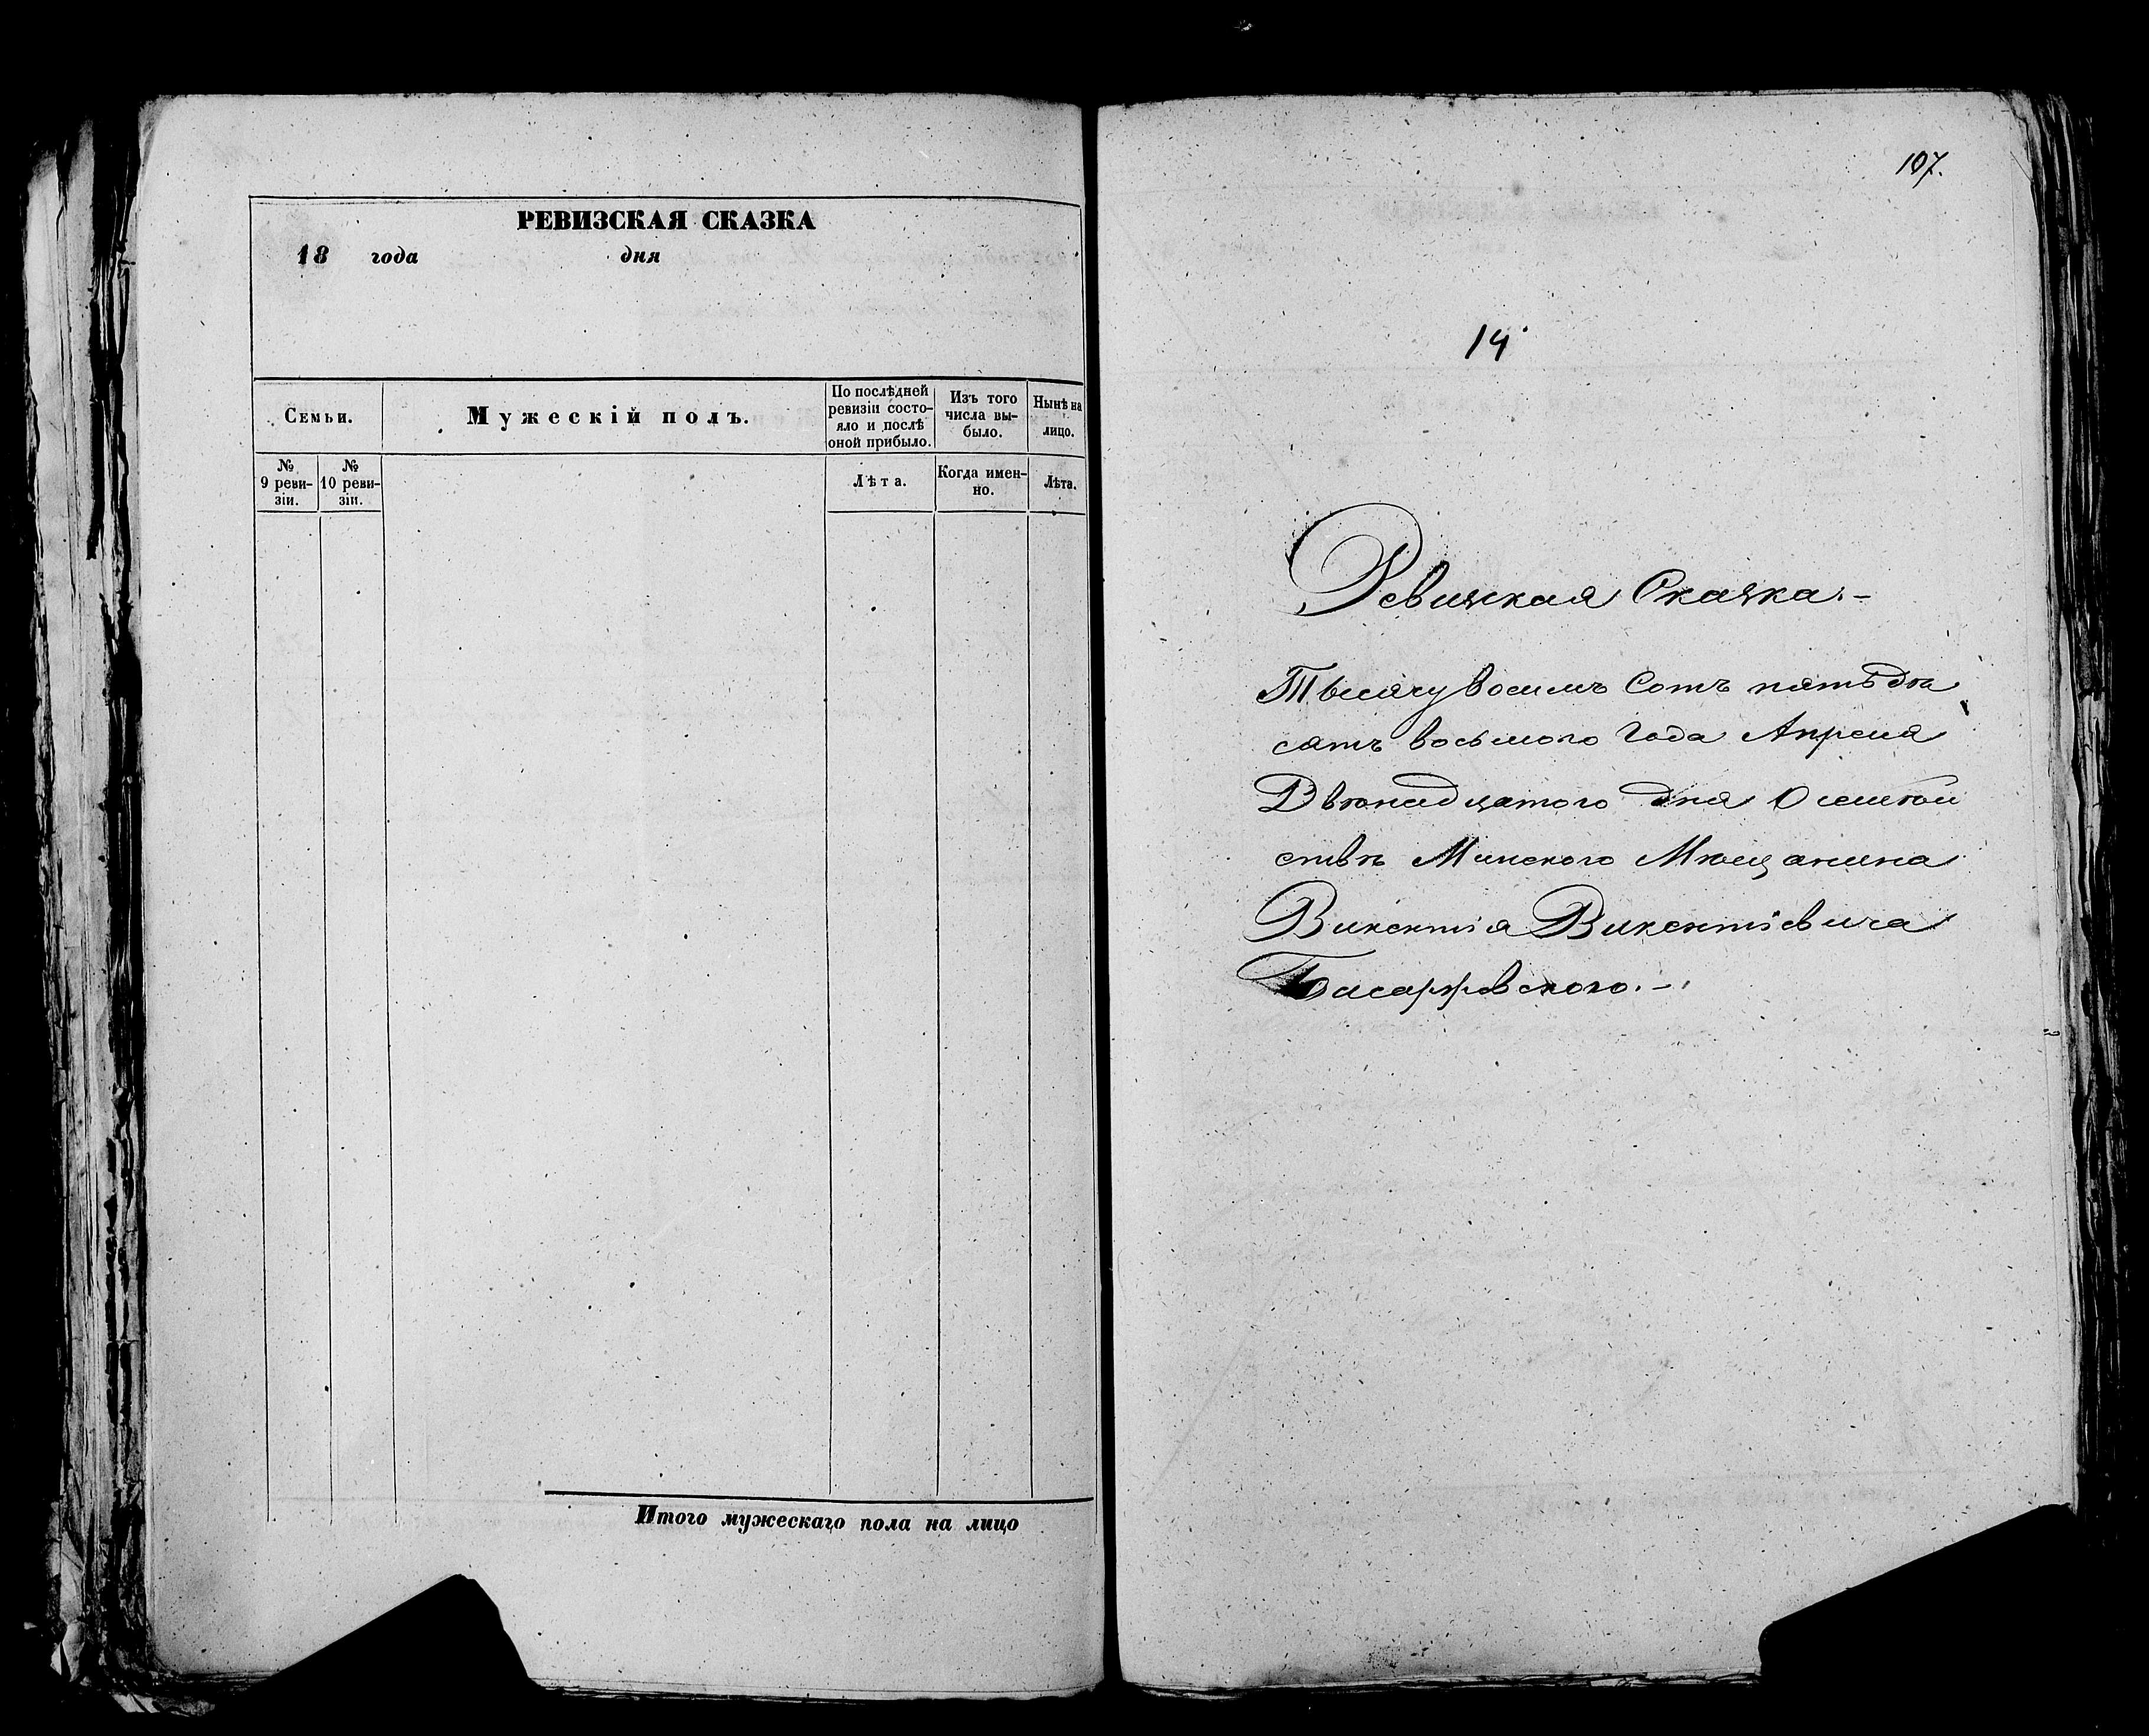 РЕВИЗСКАЯ СКАЗКА
18 года дня
Семьи.
Мужескій полъ.
По послѣдней
ревизіи состо-
яло и послѣ
оной прибыло.
Изъ того
числа вы-
было.
Нынѣ на
лицо.
№
9 реви-
зіи.
№
10 реви-
зіи.
Лѣта.
Когда имен-
но.
Лѣта.
Итого мужескаго пола на лицо
107.
14
Ревизкая Сказка.-
Тысячу восемъ Сотъ пятьде
сятъ восьмого Года Апреля
Двѣнадцатого дня О семѣй
ствѣ Минского Мѣщанина
Викентія Викентіевича